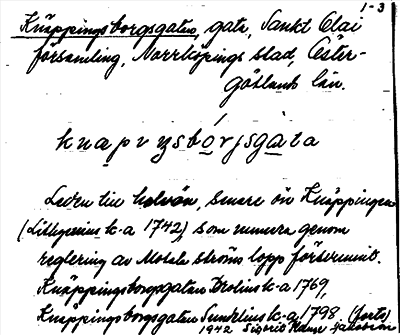 1-3
Knäppingsborgsgatan, gata, Sankt Olai
församling, Norrköpings stad, Öster-
götlands län.
knapvɪsbórjsgàta
Leden till holmen, senare ön Knäppingen
(Lithzenius k-a 1742), som numera genom
reglering av Motala ströms lopp försvunnit.
Knäppingsborgsgatan Brolin k-a 1769,
Knäppingsborgsgatan Sundelius k-a, 1798. (forts)
1942